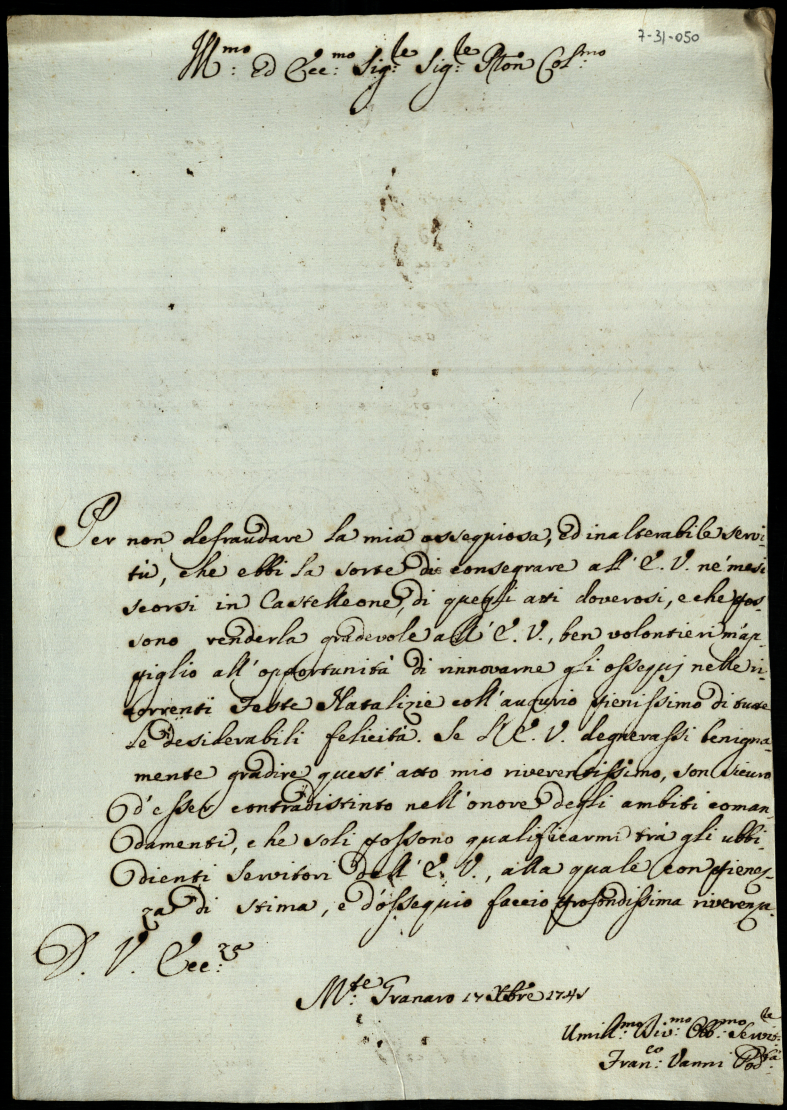 7-31-050
Ill.mo: Ed Ecc:mo Sig:le Sig:le Pron Col:mo
Per non defraudare la mia ossequiosa, ed inalterabile servi-
tù, che ebbi la sorte di consegrare all' E. V. ne' mesi
scorsi in Castelleone, di quegli atti doverosi, e che pos-
sono renderla gradevole all' E. V., ben volontieri m'ap-
piglio all' opportunità di rinnovarne gli ossequj nelle ri-
correnti Feste Natalizie coll' augurio pienissimo di tutte
le desiderabili felicità. Se l' E. V. degnerassi benigna-
mente gradire quest' atto mio riverentissimo, son sicuro
d' esser contradistinto nell' onore degli ambiti coman-
damenti, che soli possono qualificarmi trà gli ubbi-
dienti Servitori dell' E. V., alla quale con pienez-
za di stima, e d'ossequio faccio profondissima riverenza.
D. V. Ecc:za
M:te Granaro 17 Xbre 1741
Umill:mo Div:mo Obb:mo Servit:le
Fran:co Vanni Pod:tà